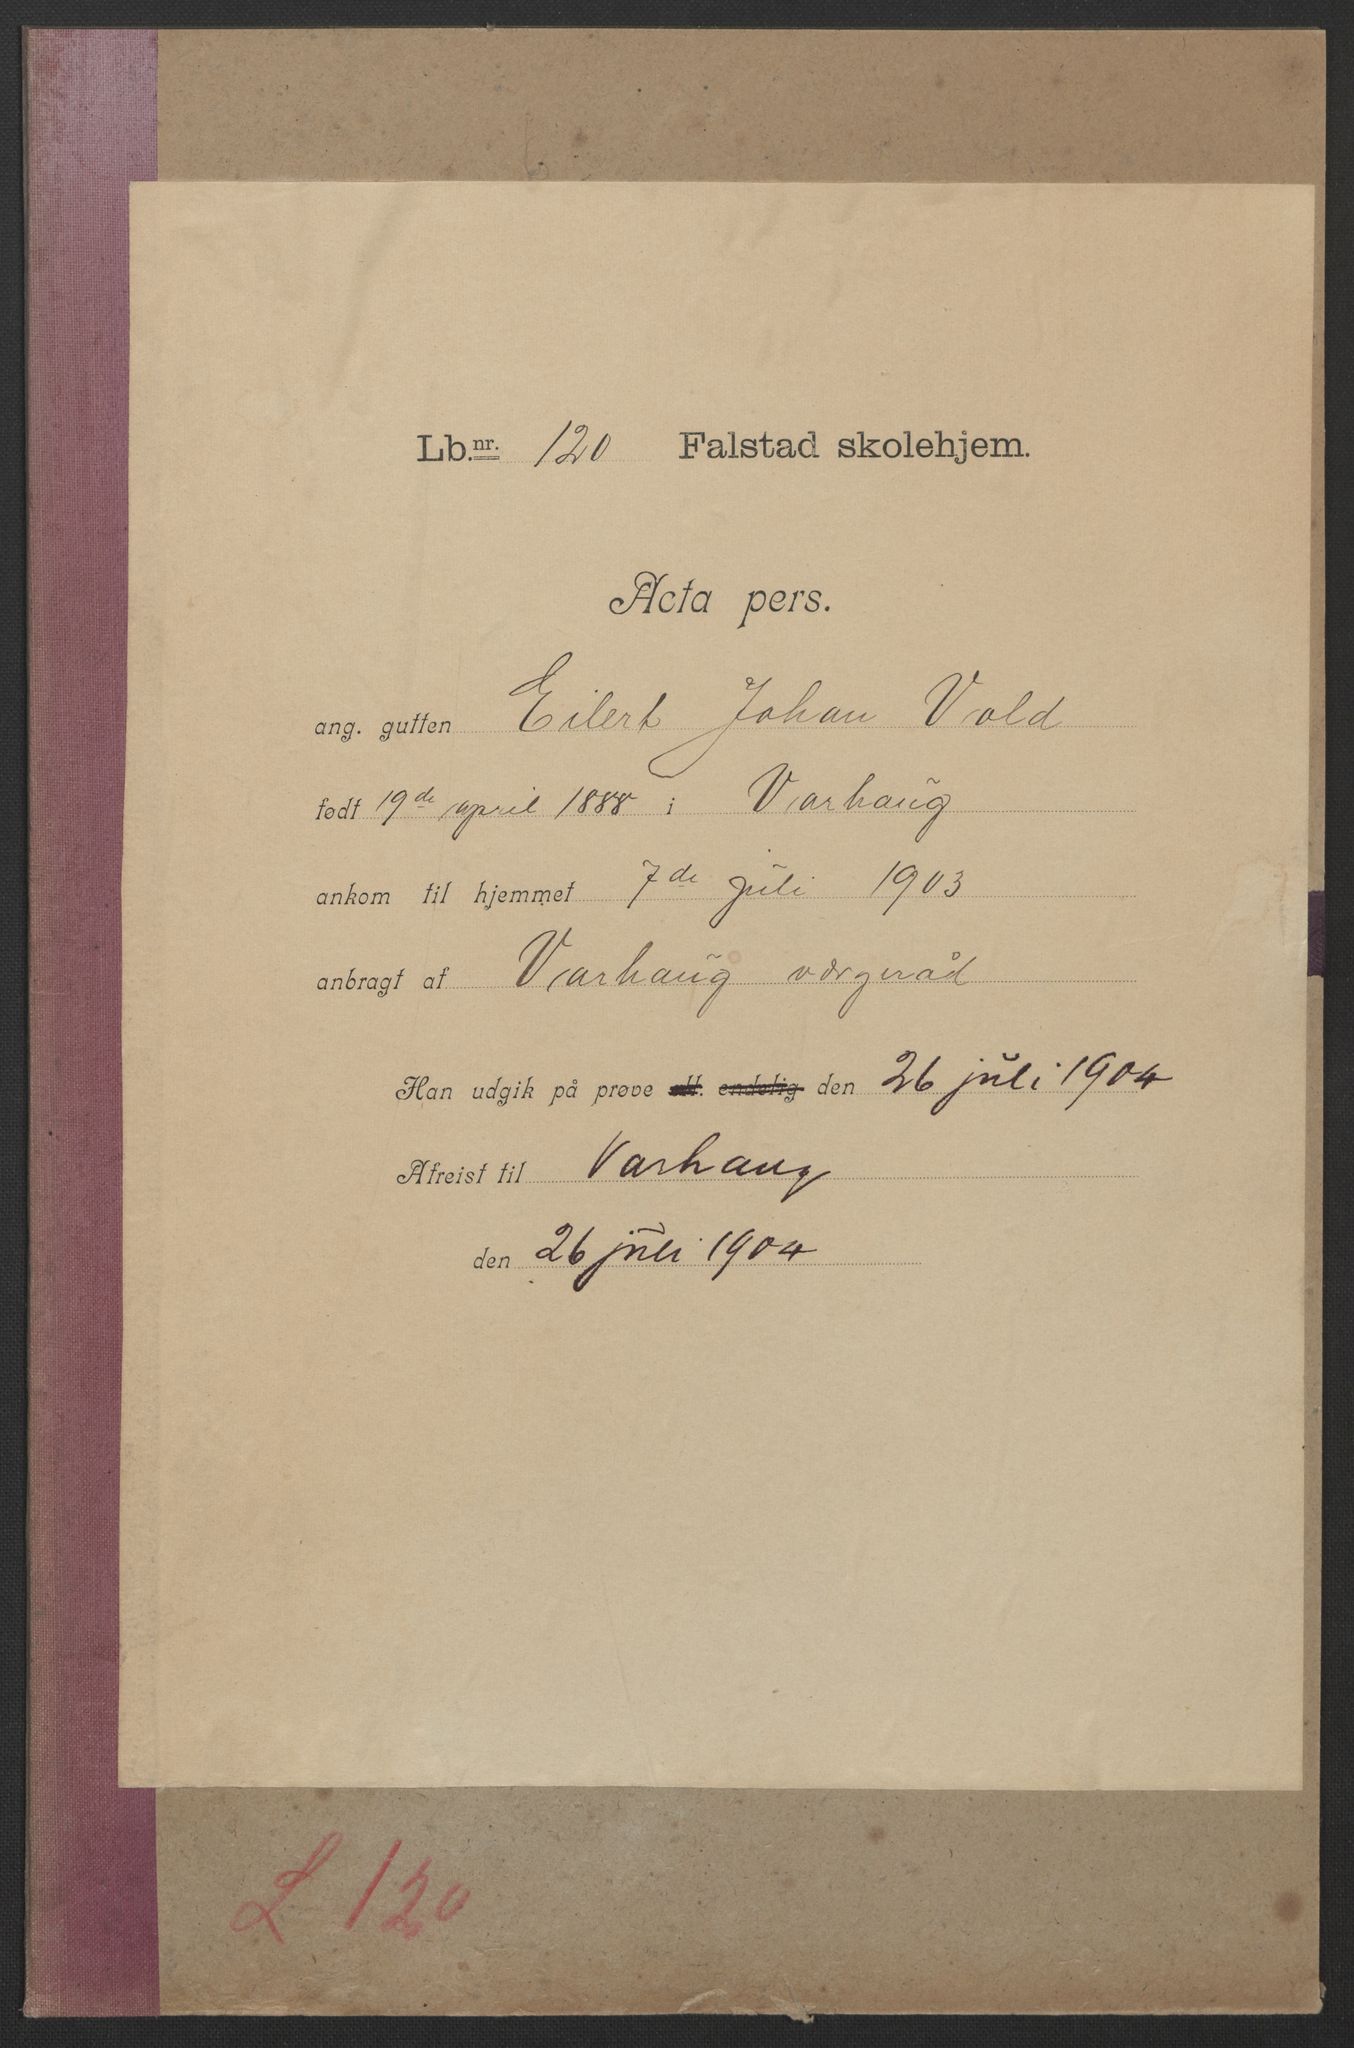 Lb.nr. 120 Falstad skolehjem.
Acta pers.
ang. gutten Eilert Johan Vold
født 19de april 1888 i Varhaug
ankom til hjemmet 7de juli 1903
anbragt af Varhaug vergeråd
Han udgik på prøve ell. endelig den 26 juli 1904
Afreist til Varhaug
den 26 juli 1904
L 120